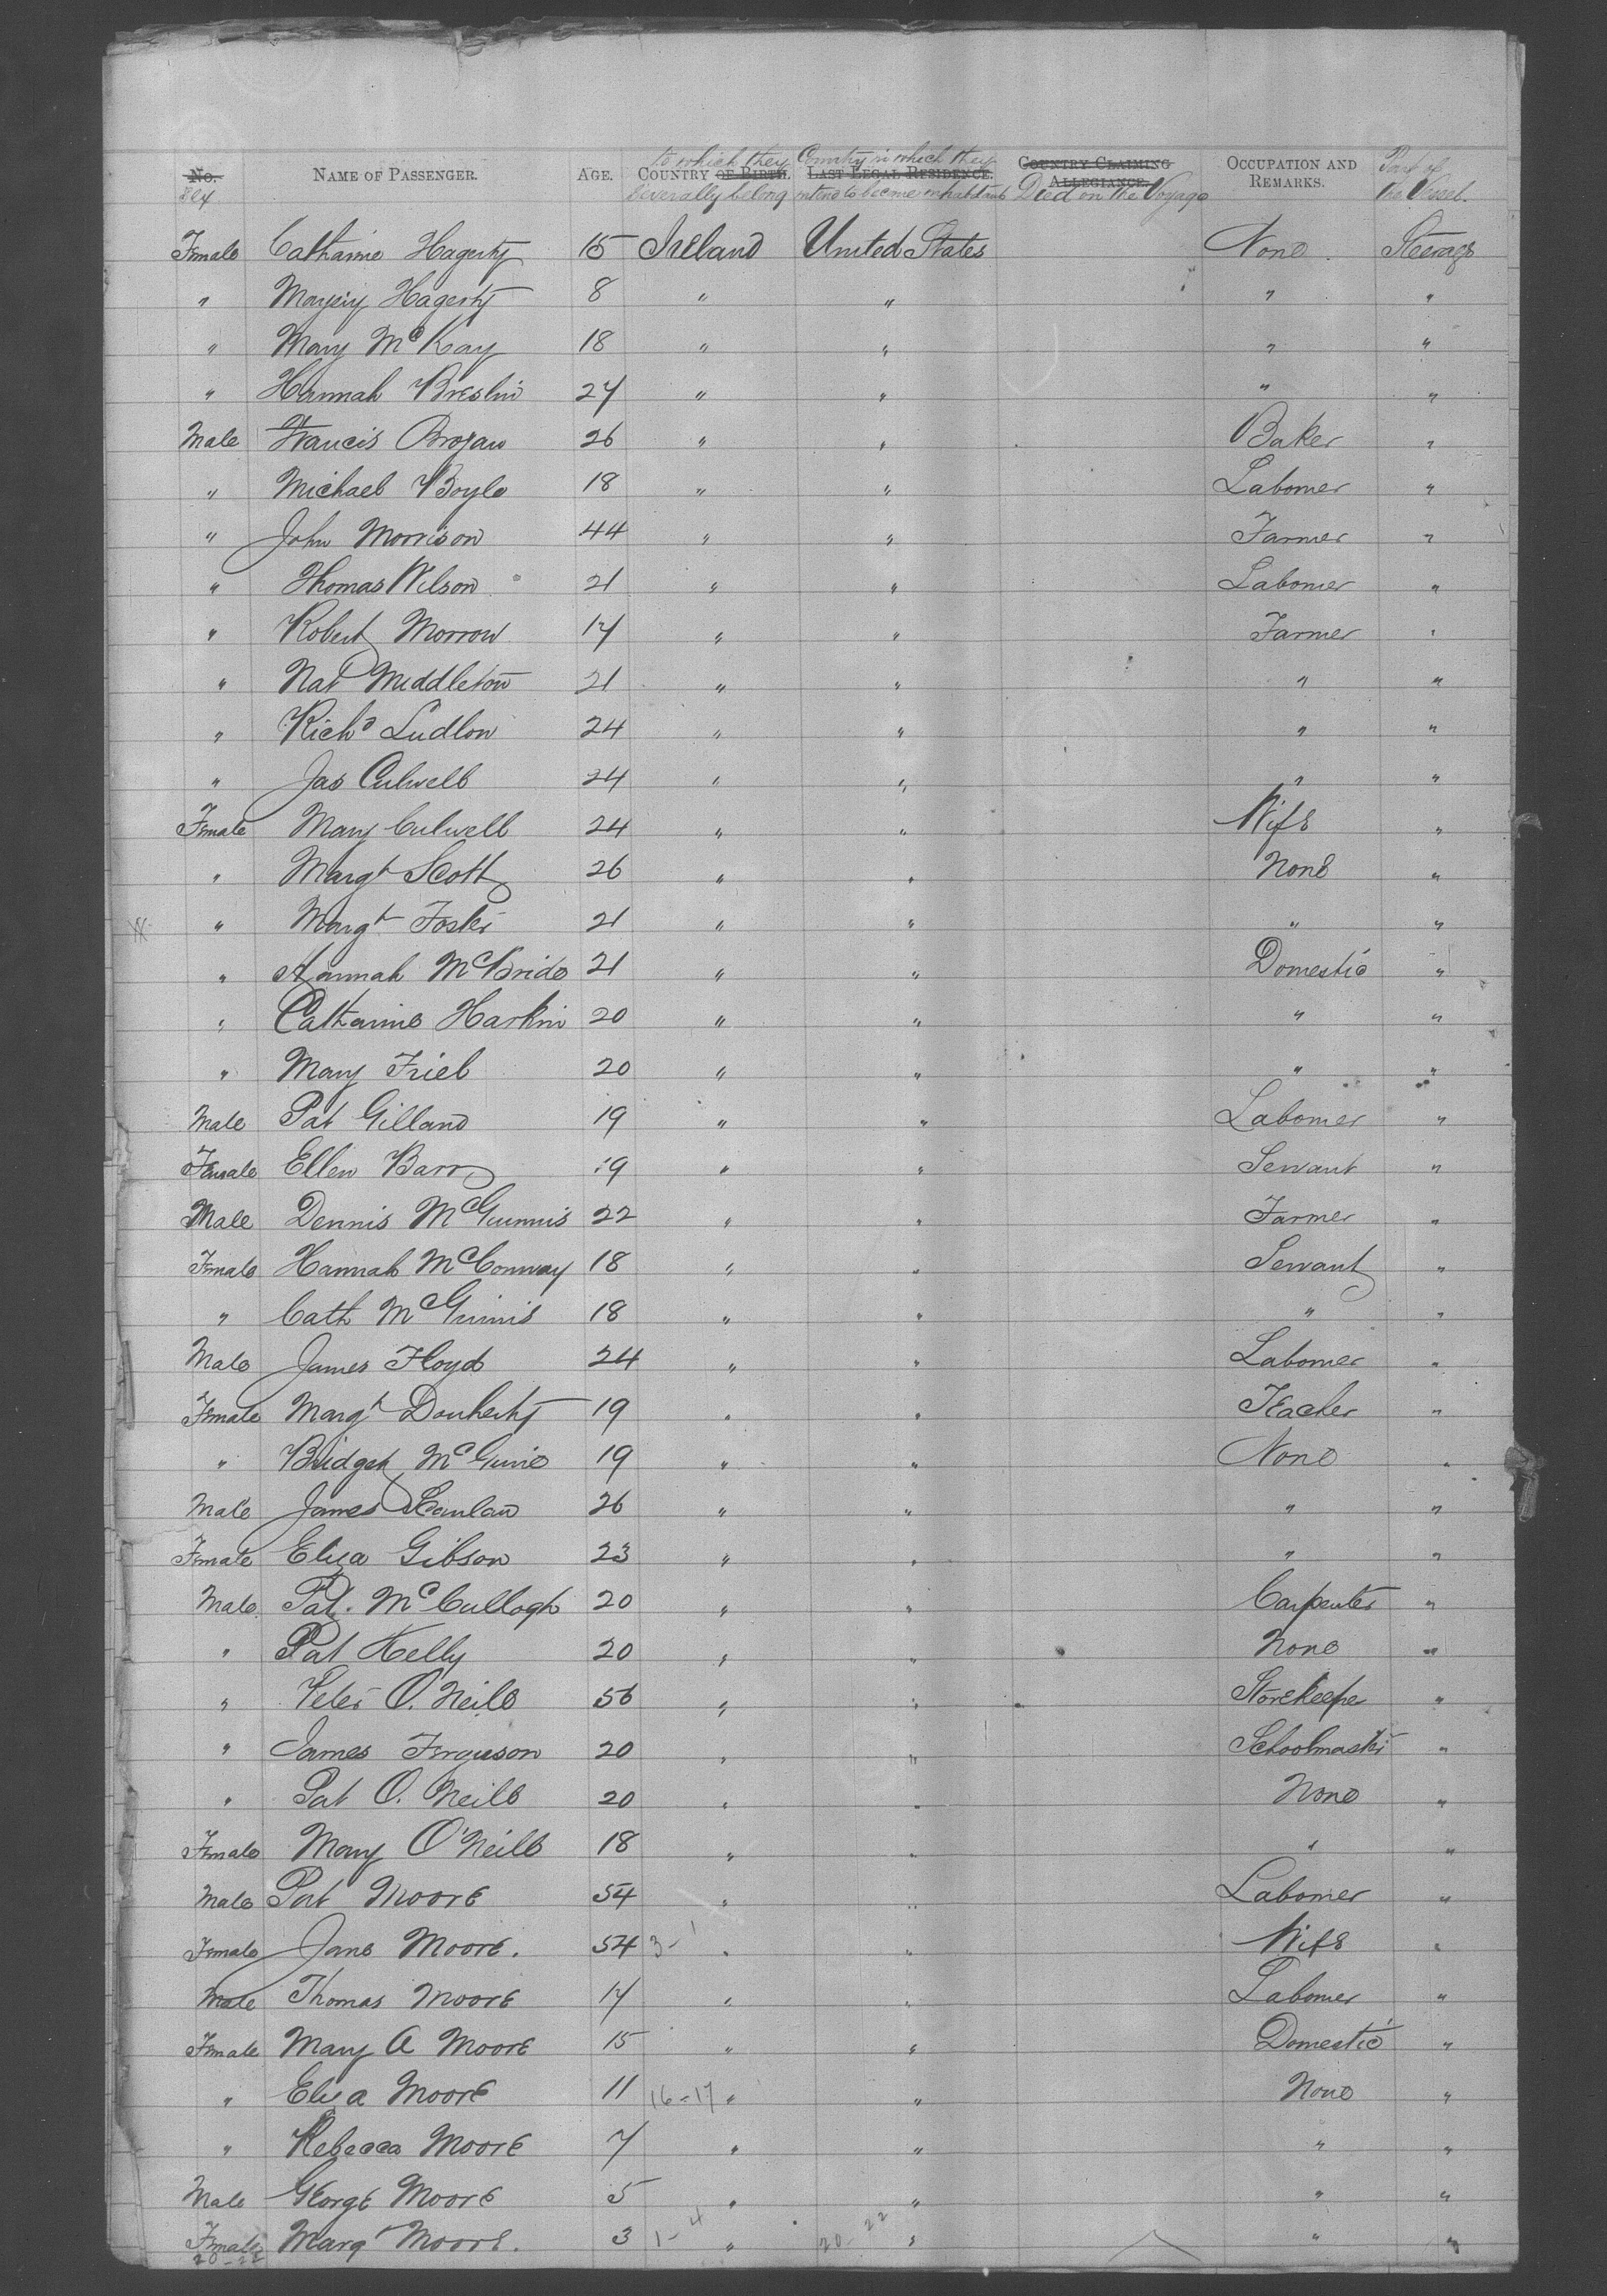 No. Sex NAME OF PASSENGER. AGE. to which they COUNTRY OF BIRTH. severally belong Country in which they LAST LEGAL RESIDENCE. intend to become inhabitants COUNTRY CLAIMING ALLEGIANCE. Died on the Voyage OCCUPATION AND REMARKS. Part of the Vessel.
Female Catharine Hagerty 15 Ireland United States None Steerage
" Marjery Hagerty 8 " " " "
" Mary McKay 18 " " " "
" Hannah Breslin 27 " " " "
Male Francis Brogan 26 " " Baker "
" Michael Boyle 18 " " Labourer "
" John Morrison 44 " " Farmer "
" Thomas Wilson 21 " " Labourer "
" Robert Morrow 17 " " Farmer "
" Nat Middleton 21 " " " "
" Richd Ludlow 24 " " " "
" Jas Culwell 24 " " " "
Female Mary Culwell 24 " " Wife "
" Margt Scott 26 " " None "
" Margt Foster 21 " " " "
" Hannah McBride 21 " " Domestic "
" Catharine Harkin 20 " " " "
" Mary Friel 20 " " " "
Male Pat Gilland 19 " " Labourer "
Female Ellen Barr 19 " " Servant "
Male Dennis McGinnis 22 " " Farmer "
Female Hannah McConway 18 " " Servant "
" Cath McGinnis 18 " " " "
Male James Floyd 24 " " Labourer "
Female Margt Douherty 19 " " Teacher "
" Bridget 19 " " None "
Male James Scanlan 26 " " " "
Female Eliza Gibson 23 " " " "
Male Pat. McCullogh 20 " " Carpenter "
" Pat Kelly 20 " " None "
" Peter O. Neill 56 " " Storekeeper "
" James Ferguson 20 " " Schoolmaster "
" Pat O. Neill 20 " " None "
Female Mary O'Neill 18 " " " "
Male Pat Moore 54 " " Labourer "
Female Jane Moore. 54 3-1 " " Wife "
Male Thomas Moore 17 " " Labourer "
Female Mary A Moore 15 " " Domestic "
" Eliza Moore 11 16-17 " " None "
" Rebecca Moore 7 " " " "
Male George Moore 5 " " " "
Female Margt Moore. 3 1-4 " 20-22 " " "
20-22